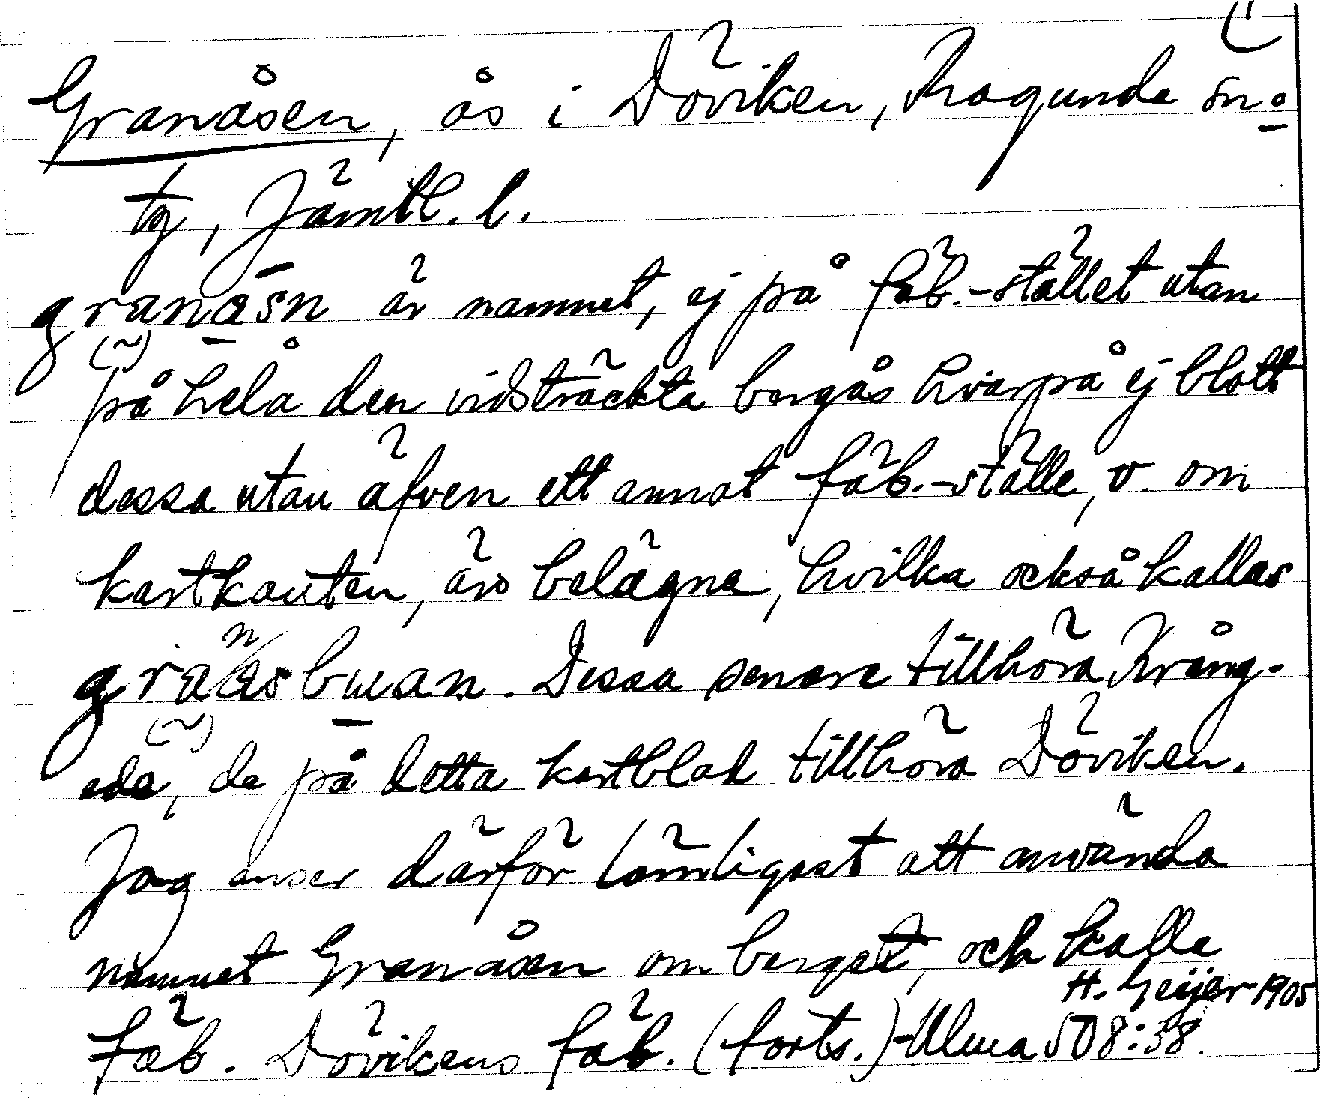 Granåsen, ås i Döviken, Ragunda sn.
tg, Jämtl. l.
granåsn är namnet, ej på fäb.-stället utan
på hela den vidsträckta bergås hvarpå ej blott
dessa utan äfven ett annat fäb.-ställe, v. om
kartkanten, äro belägna, hvilka också kallas
granåsbuan. Dessa senare tillhöra Kång-
ede, de på detta kartblad tillhöra Döviken.
Jag anser därför lämpligast att använda
namnet Granåsen om berget, och kalla
fäb. Dövikens fäb. (forts.) Ulma 508:38.
H. Geijer 1905